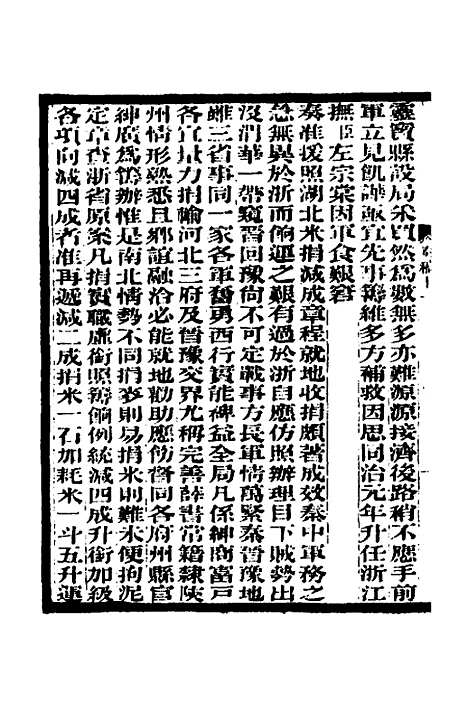 靈寶縣設局采買然爲數無多亦難源源接濟後路稍不應手前
軍立見飢譁亟宜先事籌維多方補救因思同治元年升任浙江
撫臣左宗棠因軍食艱窘
奏准援照湖北米捐減成章程就地收捐頗著成效秦中軍務之
急無異於浙而餉運之艱有過於浙自應仿照辦理目下賊勢出
沒渭華一帶窺晉回豫尚不可定戰事方長軍情萬緊秦晉豫地
雖三省事同一家各軍奮勇西行實能裨益全局凡係紳商富戶
各宜量力捐輸河北三府及晉豫交界尤稱完善薛書常籍隸陝
州情形熟悉且鄉誼融洽必能就地勸助應飭督同各府州縣官
紳廣爲籌辦惟是南北情勢不同捐麥則易捐米則難未便拘泥
定章查浙省原案凡捐實職虛銜照籌餉例統減四成升銜加級
各項向減四成者准再遞減二成捐米一石加耗米一斗五升運